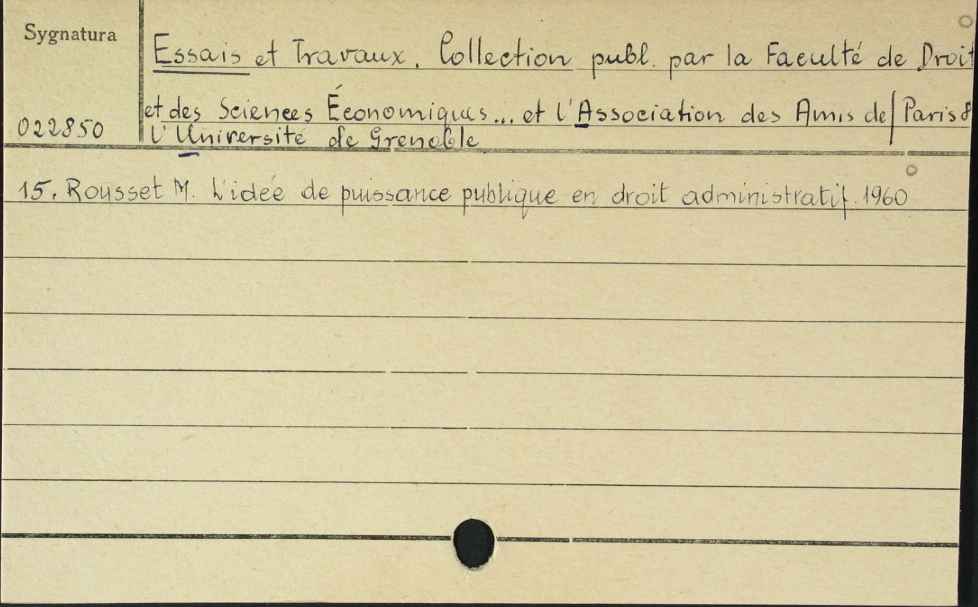 Sygnatura
Essais et Travaux. Collection publ. par la Faculté de Droit
et des Sciences Économiques... et l'Association des Amis de | Paris 8
022850
l'Université de Grenoble
15. Rousset M. L'idée de puissance publique en droit administratif. 1960